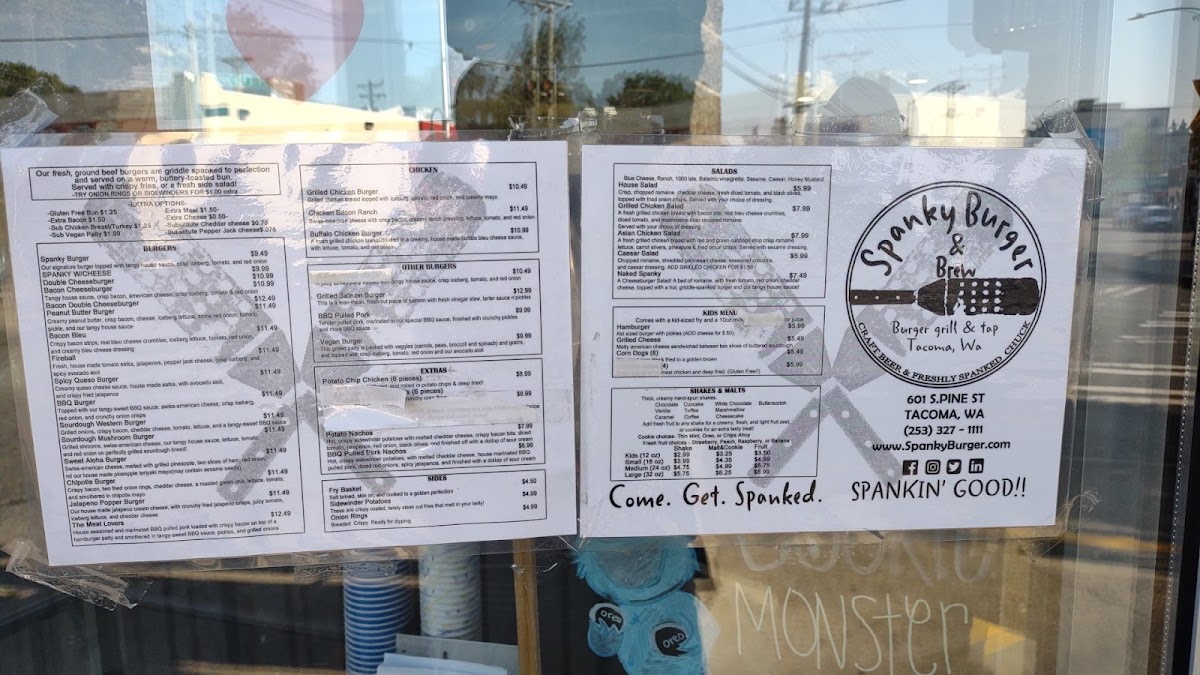 Our fresh, ground beef burgers are griddle spanked to perfection
and served on a warm, buttery-toasted bun.
Served with crispy fries, or a fresh side salad!
-TRY ONION RINGS OR SIDEWINDERS FOR $1.00 extra
-EXTRA OPTIONS-
-Gluten Free Bun $1.25
-Extra Bacon $1.50
-Sub Chicken Breast/Turkey $1.25
-Sub Vegan Patty $1.00
-Extra Meat $1.50-
-Extra Cheese $0.50-
-Substitute Cheddar cheese $0.75
-Substitute Pepper Jack cheese
BURGERS
Spanky Burger $9.49
Our signature burger topped with tangy house sauce, crisp iceberg, tomato, and red onion
SPANKY W/CHEESE $9.99
Double Cheeseburger $10.99
Bacon Cheeseburger $10.99
Tangy house sauce, crisp bacon, american cheese, crisp iceberg, tomato & red onion
Bacon Double Cheeseburger $12.49
Peanut Butter Burger $11.49
Creamy peanut butter, crisp bacon, cheese, iceberg lettuce, some red onion, tomato,
pickle, and our tangy house sauce
Bacon Bleu $11.49
Crispy bacon strips, real bleu cheese crumbles, iceberg lettuce, tomato, red onion,
and creamy bleu cheese dressing
Fireball $11.49
Fresh, house made tomato salsa, jalapenos, pepper jack cheese, crisp iceberg, and
spicy avocado aioli
Spicy Queso Burger $11.49
Creamy queso cheese sauce, house made salsa, with avocado aioli,
and crispy fried jalapenos
BBQ Burger $11.49
Topped with our tangy-sweet BBQ sauce, swiss-american cheese, crisp iceberg,
red onion, and crunchy onion crisps
Sourdough Western Burger $11.49
Grilled onions, crispy bacon, cheddar cheese, tomato, lettuce, and a tangy-sweet BBQ sauce
Sourdough Mushroom Burger $11.49
Grilled shrooms, swiss-american cheese, our tangy house sauce, lettuce, tomato,
and red onion on perfectly grilled sourdough bread!
Sweet Aloha Burger $11.49
Swiss-american cheese, melted with grilled pineapple, two slices of ham, red onion,
nd our house made pineapple teriyaki mayo(may contain sesame seeds)
Chipotle Burger $11.49
Crispy bacon, two fried onion rings, cheddar cheese, a roasted green chili, lettuce, tomato,
and smothered in chipotle mayo
Jalapeno Popper Burger $11.49
Our house made jalapeno cream cheese, with crunchy fried jalapeno crisps, juicy tomato,
iceberg lettuce, and cheddar cheese
The Meat Lovers $12.49
House seasoned and marinated BBQ pulled pork loaded with crispy bacon on top of a
hamburger patty and smothered in tangy-sweet BBQ sauce, pickles, and grilled onions
CHICKEN
Grilled Chicken Burger $10.49
Grilled chicken breast topped with iceberg, tomato, red onion, and creamy mayo
Chicken Bacon Ranch $11.49
Swiss-american cheese with crisp bacon, creamy ranch dressing, lettuce, tomato, and red onion
Buffalo Chicken Burger $10.99
A fresh grilled chicken breast basted in a creamy, house made buffalo bleu cheese sauce,
with lettuce, tomato, and red onion
OTHER BURGERS
$10.49
crisp iceberg, tomato, and red onion
Grilled Salmon Burger $12.99
This is a lean-mean, fresh-cut piece of salmon with fresh vinegar slaw, tarter sauce n'pickles
BBQ Pulled Pork $9.99
Tender pulled pork, marinated in our special BBQ sauce, finished with crunchy pickles
and more BBQ sauce
Vegan Burger $9.99
This grilled patty is packed with veggies (carrots, peas, broccoli and spinach) and grains,
and topped with crisp iceberg, tomato, red onion and our avocado aioli
EXTRAS
Potato Chip Chicken (6 pieces) $8.99
and rolled in potato chips & deep fried!
s (6 pieces) $8.99
choice
Potato Nachos $8.99
Hot, crispy sidewinder potatoes with melted cheddar cheese, crispy bacon bits, diced
tomato, jalapenos, red onion, black olives, and finished off with a dollop of sour cream
BBQ Pulled Pork Nachos $8.99
Hot, crispy sidewinder potatoes, with melted cheddar cheese, house marinated BBQ
pulled pork, diced red onions, spicy jalapenos, and finished with a dollop of sour cream
SIDES
Fry Basket $4.50
Salt brined, skin on, and cooked to a golden perfection
Sidewinder Potatoes $4.99
These are crispy coated, twisty steak cut fries that melt in your belly!
Onion Rings $4.99
Breaded. Crispy. Ready for dipping.
SALADS
Blue Cheese, Ranch, 1000 isle, Balsamic vinaigrette, Sesame, Caesar, Honey Mustard
House Salad $5.99
Crisp, chopped romaine, cheddar cheese, fresh diced tomato, and black olives,
topped with fried onion crisps. Served with your choice of dressing.
Grilled Chicken Salad $7.99
A fresh grilled chicken breast with bacon bits, real bleu cheese crumbles,
diced tomato, and mushrooms over chopped romaine
Served with your choice of dressing.
Asian Chicken Salad $7.99
A fresh grilled chicken breast with red and green cabbage atop crisp romaine
lettuce, carrot slivers, pineapple & fried onion crisps. Served with sesame dressing.
Caesar Salad $5.99
Chopped romaine, shredded parmesan cheese, seasoned croutons,
and caesar dressing. ADD GRILLED CHICKEN FOR $1.50
Naked Spanky $7.49
A Cheeseburger Salad! A bed of romaine, with fresh tomato, red onion, cheddar
cheese, topped with a hot, griddle-spanked burger and our tangy house sauce!
KIDS MENU
Comes with a kid-sized fry and a 10oz milk or juice
Hamburger $5.99
Kid sized burger with pickles (ADD cheese for $.50)
Grilled Cheese $5.49
Melty american cheese sandwiched between two slices of buttered sourdough
Corn Dogs (6) $5.49
fried to a golden brown
4) $5.99
meat chicken and deep fried. (Gluten Free!!)
SHAKES & MALTS
Thick, creamy hand-spun shakes.
Chocolate Cupcake White Chocolate Butterscotch
Vanilla Toffee Marshmallow
Caramel Coffee Cheesecake
Add fresh fruit to any shake for a creamy, fresh, and light fruit treat,
or cookies for an extra tasty treat!
Cookie choices- Thin Mint, Oreo, or Chips Ahoy
Fresh fruit choices - Strawberry, Peach, Raspberry, or Banana
Shake Malt&Cookie Fruit
Kids (12 oz) $2.99 $3.25 $3.50
Small (16 oz) $3.99 $4.35 $4.50
Medium (24 oz) $4.75 $4.99 $5.75
Large (32 oz) $5.75 $6.25 $8.99
Come. Get. Spanked.
Spanky Burger
&
Brew
Burger grill & tap
Tacoma, Wa
CRAFT BEER & FRESHLY SPANKED CHUCK
601 S.PINE ST
TACOMA, WA
(253) 327 - 1111
www.SpankyBurger.com
SPANKIN' GOOD!!
COOKIE
MONSTER
OREO
OREO